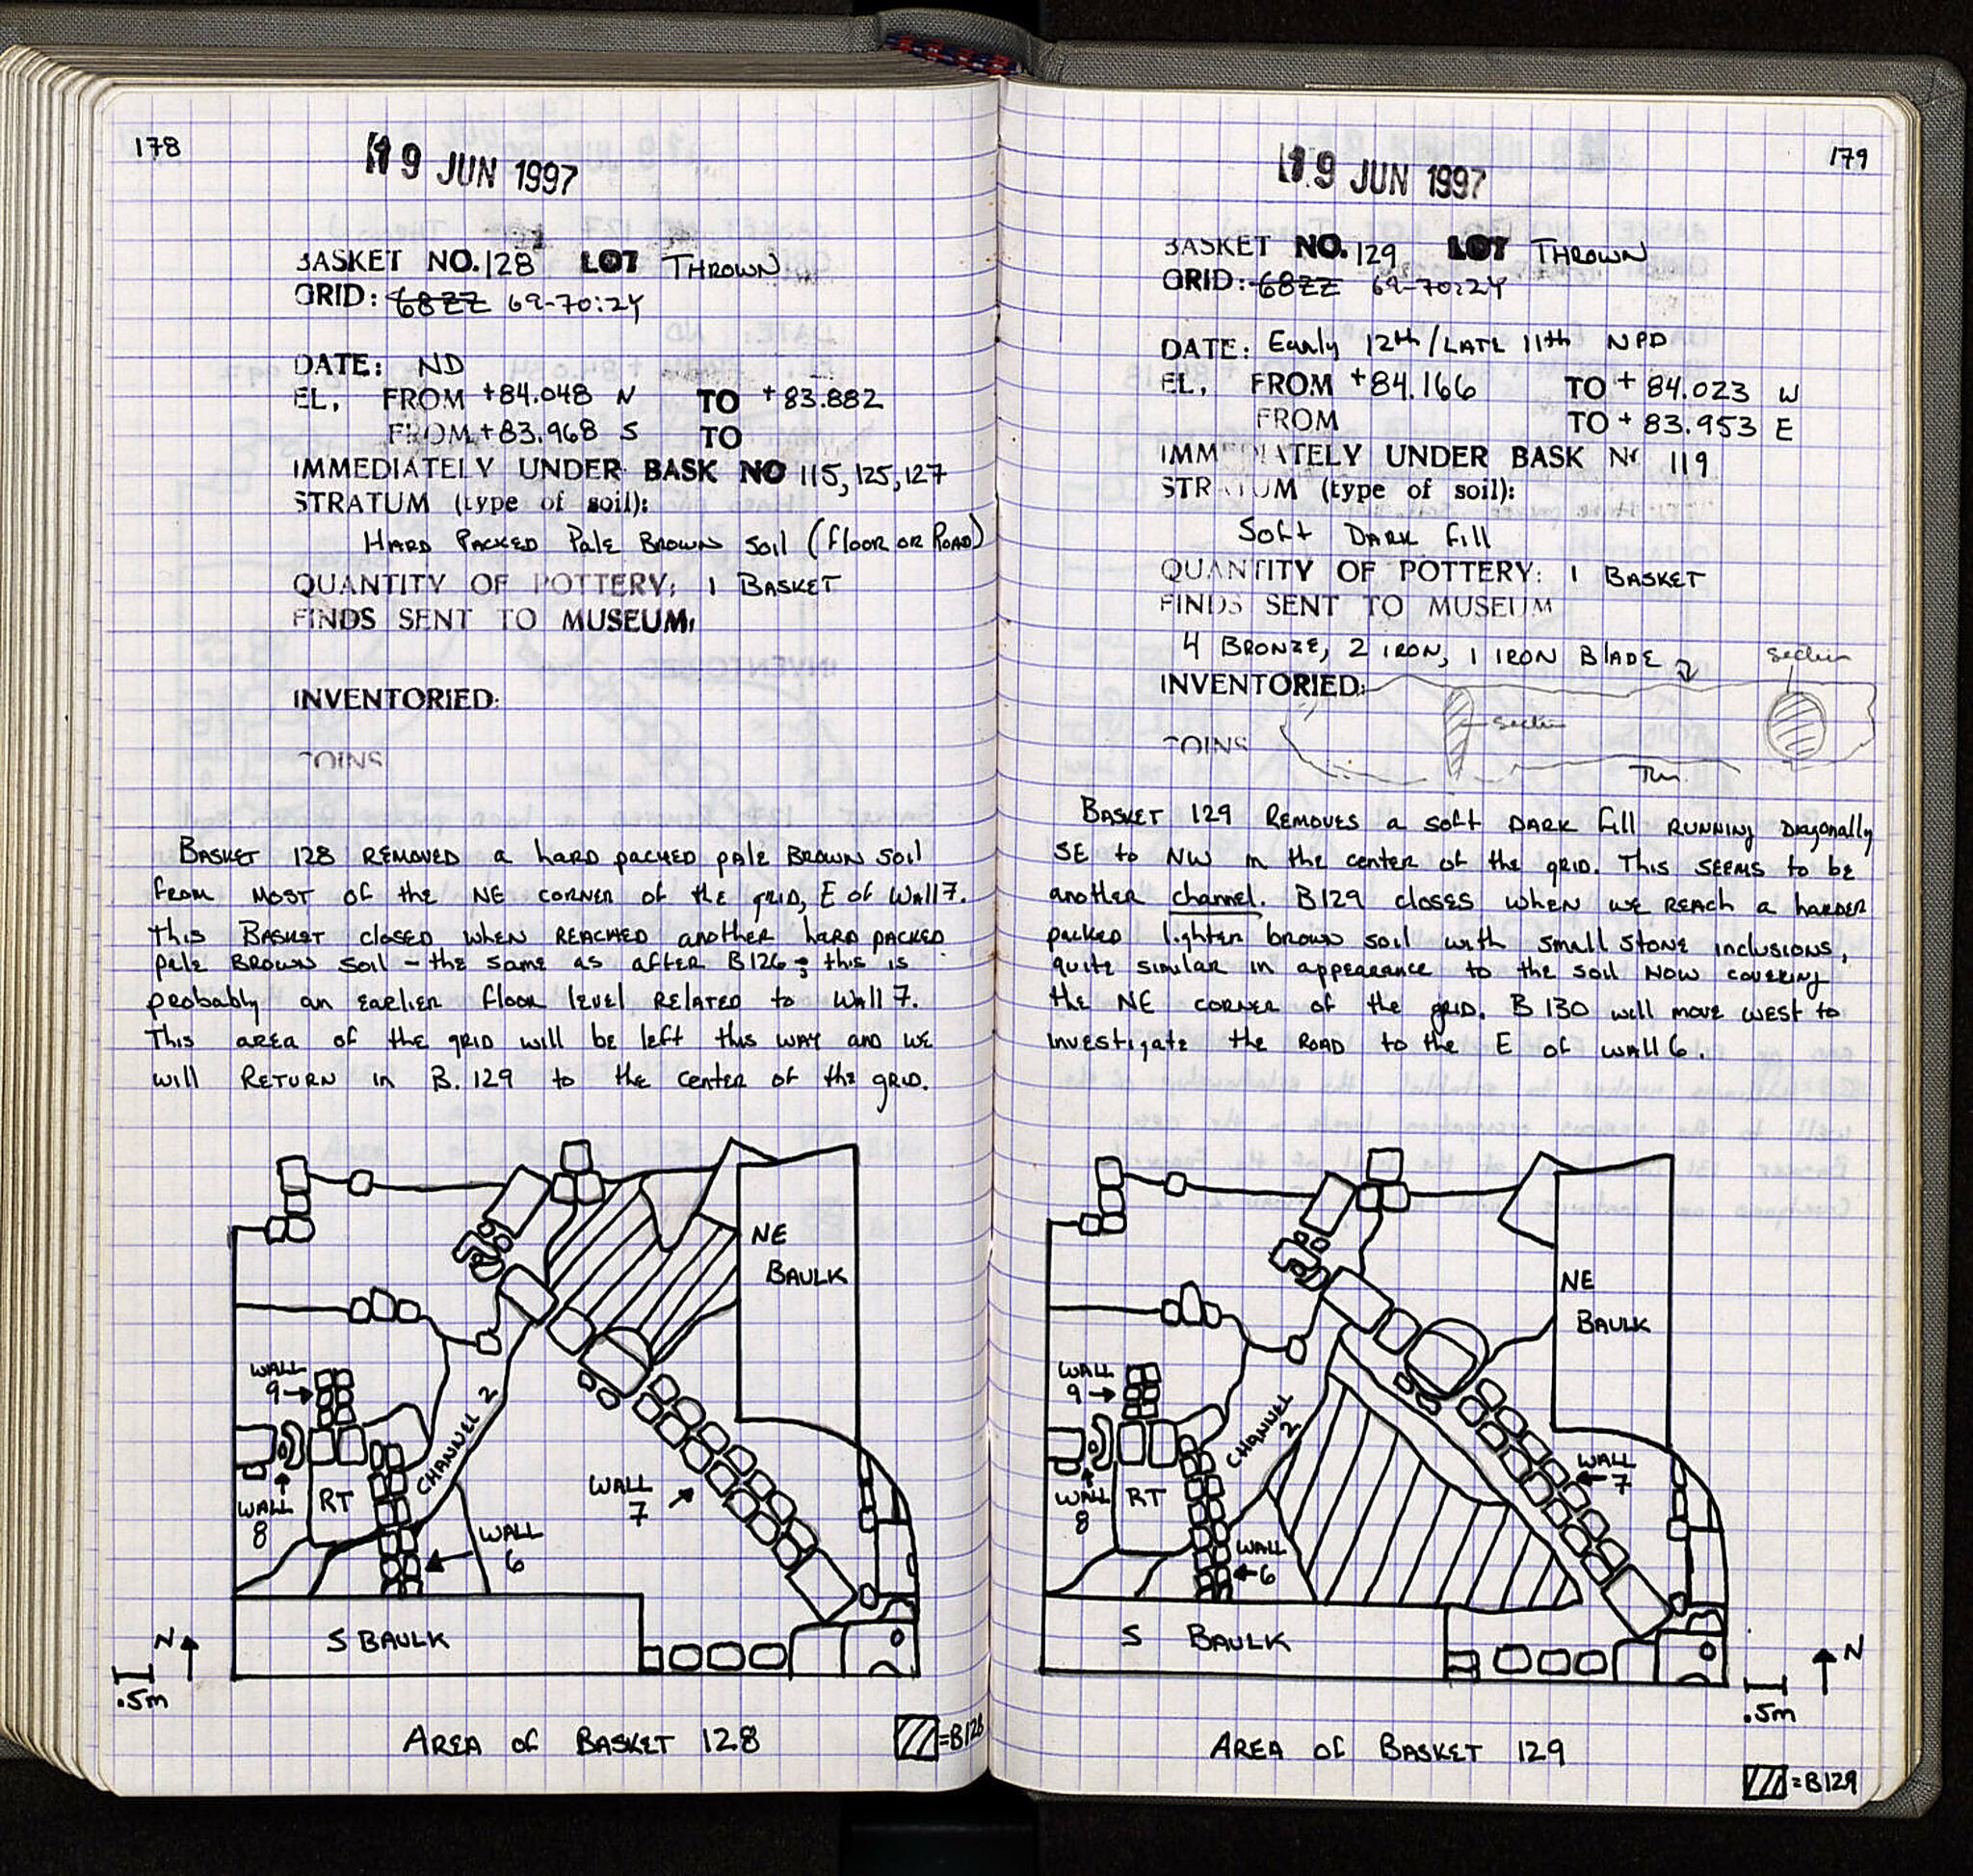 178
19 JUN 1997
BASKET NO. 128 LOT THROWN
GRID: 68ZZ 69-70:ZY
DATE: ND
EL. FROM +84.048 N TO +83.882
FROM +83.968 S TO
IMMEDIATELY UNDER BASK NO 115, 125, 127
STRATUM (type of soil):
HARD PACKED Pale BROWN Soil (Floor or Road)
QUANTITY OF POTTERY: 1 BASKET
FINDS SENT TO MUSEUM:
INVENTORIED:
COINS
BASKET 128 REMOVED a hard packed pale BROWN soil
from MOST of the NE CORNER of the grid, E of Wall 7.
This BASKET closed when REACHED another hard packed
pale BROWN soil - the same as after B126; this is
probably an EARLIER floor level RELATED to Wall 7.
This area of the grid will be left this way and we
will RETURN in B. 129 to the center of the grid.
NE
BAULK
WALL
9
CHANNEL 2
WALL
8
RT
WALL
7
WALL
6
S BAULK
N
.5m
AREA of BASKET 128
=B128
179
19 JUN 1997
BASKET NO. 129 LOT THROWN
GRID: 68ZZ 69-70:ZY
DATE: Early 12th/LATE 11th NPD
EL. FROM +84.166 TO +84.023 W
FROM TO +83.953 E
IMMEDIATELY UNDER BASK NO 119
STRATUM (type of soil):
Soft DARK fill
QUANTITY OF POTTERY: 1 BASKET
FINDS SENT TO MUSEUM
4 BRONZE, 2 IRON, 1 IRON BLADE
section
INVENTORIED:
section
COINS
BASKET 129 REMOVES a soft DARK fill RUNNING Diagonally
SE to NW in the center of the grid. This SEEMS to be
another channel. B129 closes when we REACH a harder
packed lighter brown soil with small stone inclusions,
quite similar in appearance to the soil NOW covering
the NE corner of the grid. B 130 will move west to
investigate the ROAD to the E of wall 6.
NE
BAULK
WALL
9
CHANNEL
2
WALL
7
WALL
8
RT
WALL
6
S BAULK
N
.5m
AREA of BASKET 129
=B129